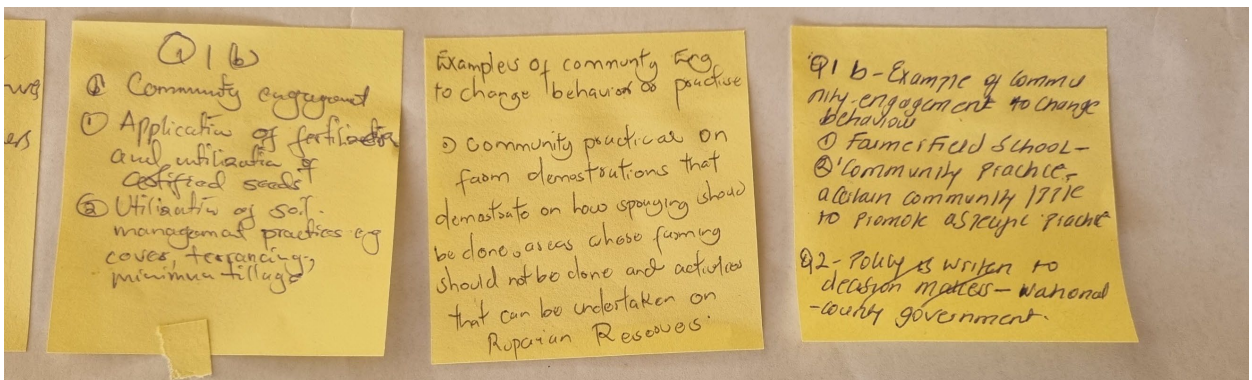 Q1b
① Community engagement
① Application of
and utilization of
certified seeds
② Utilization of soil
management practices eg
cover, terrancing,
minimum tillage
Examples of communty Eng
to change behavior or practise
① Community practical on
farm demostrations that
demostrate on how spraying shoud
be done, areas whose farming
should not be done and activities
that can be undertaken on
Ruparian Reseovers.
Q1 b - Example of Commu
nity engagement to change
behaviour
① Farmer field School -
② Community Practice,
a certain community
to promote a specific practice
Q2 - Policy is writen to
decision makers - National
- county government.